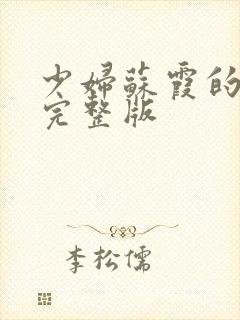 少婦蘇霞的
完整版
李松儒